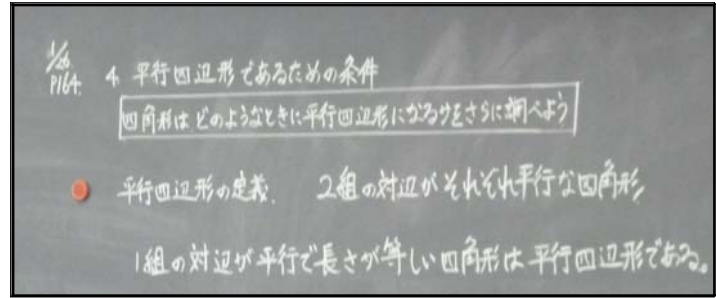 1/26
P164. 4. 平行四辺形であるための条件
四角形はどのようなときに平行四辺形になるかをさらに調べよう
平行四辺形の定義. 2組の対辺がそれぞれ平行な四角形
1組の対辺が平行で長さが等しい四角形は平行四辺形である。